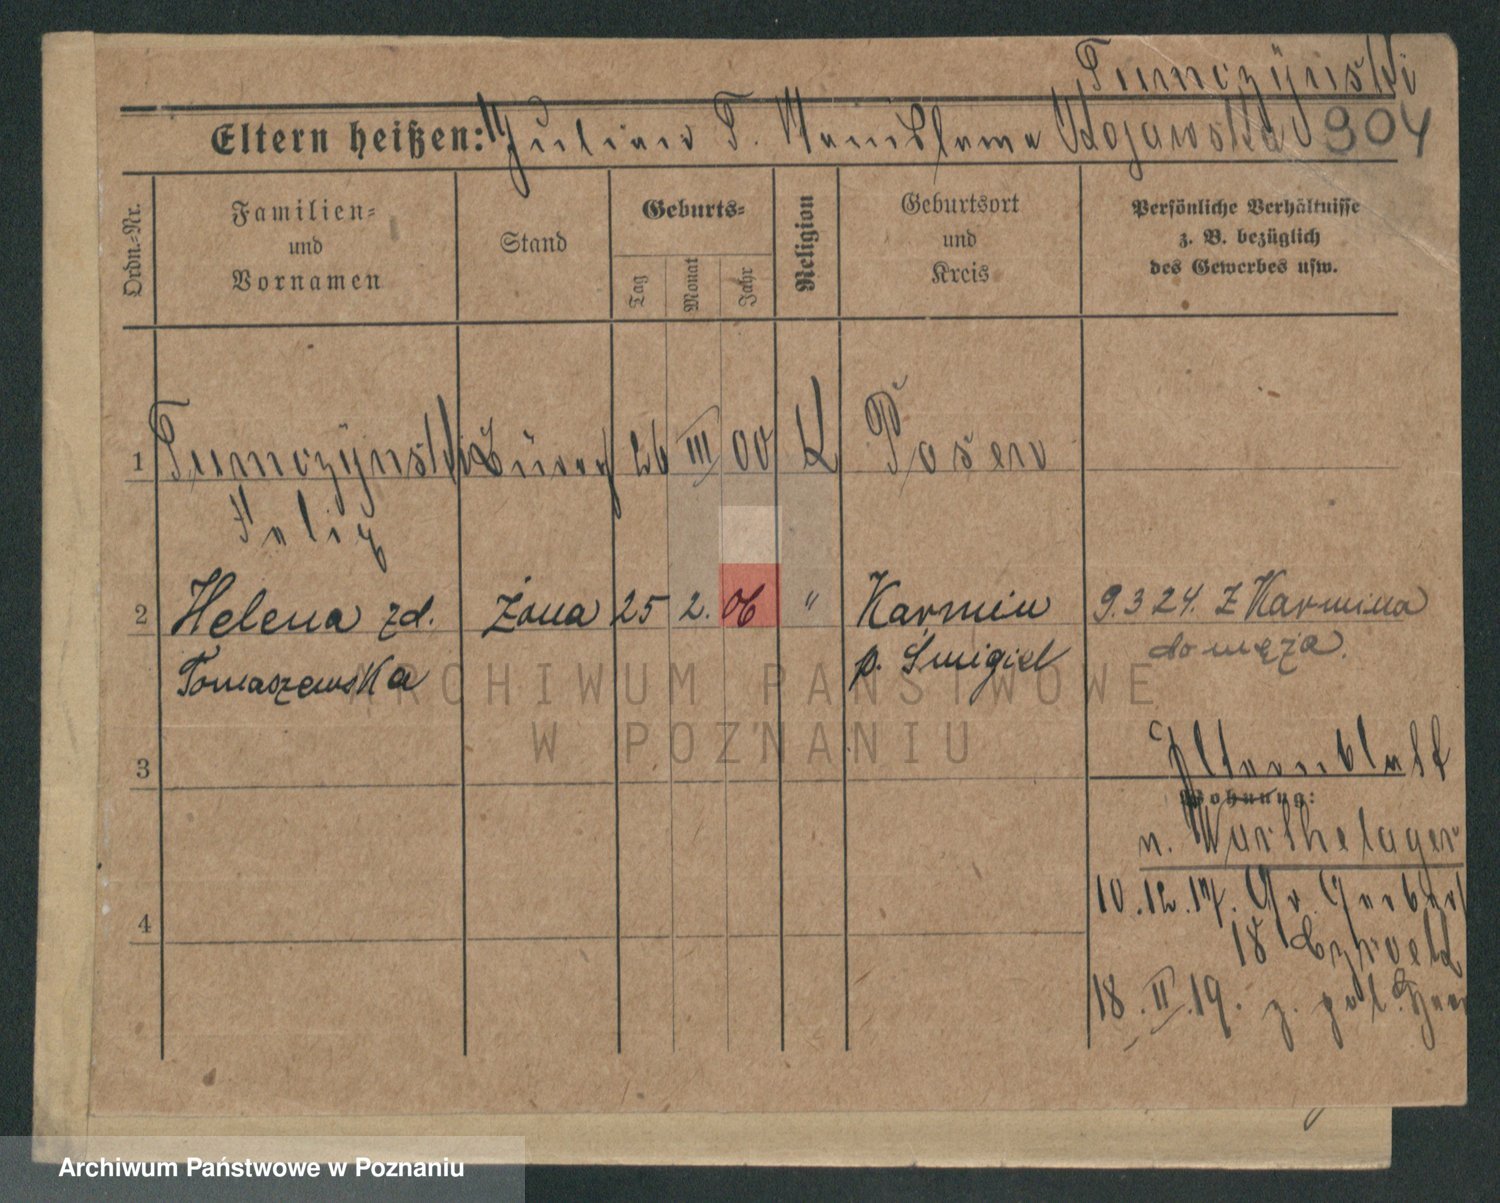 Tumczÿnski
Eltern heißen: Julian T. Stanislawa Kojawska 904
Ordn.=Nr.
Familien=
und
Vornamen
Stand
Geburts=
Tag
Monat
Jahr
Religion
Geburtsort
und
Kreis
Persönliche Verhältnisse
z. B. bezüglich
des Gewerbes usw.
1 Tumczÿnski 26 III 00 K Posen
Felix
2 Helena zd. żona 25 2. 06 " Karmin 9.3 24. Z Karmina
Tomaszewska p. Śmigiel do męża.
3 Elternblatt
Wohnung:
n. Warthelager
4 10.12.17. Gr. Gerber
18
18.II.19. z. pol. Heer
ARCHIWUM PAŃSTWOWE
W POZNANIU
Archiwum Państwowe w Poznaniu